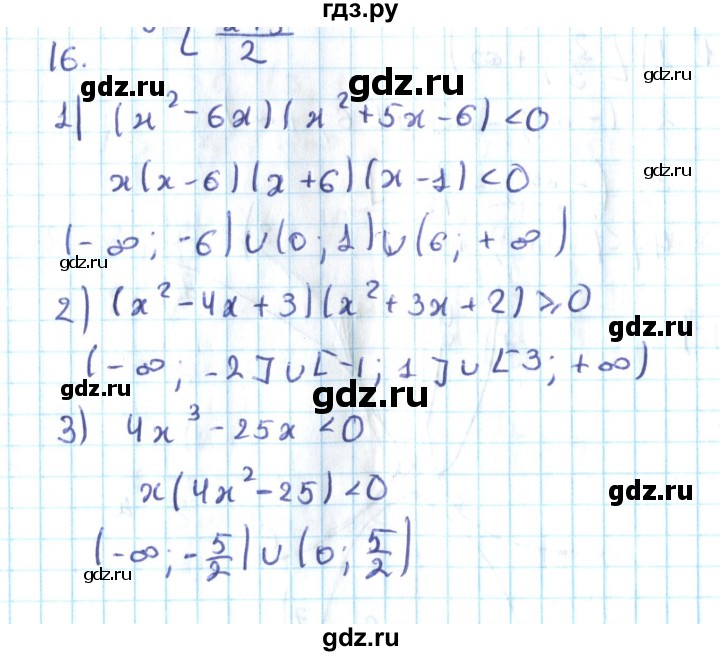 гдз.ру
16. [ 2
gdz.ru
gdz.ru
1) (x² - 6x)(x² + 5x - 6) < 0
gdz.ru
x(x - 6)(x + 6)(x - 1) < 0
gdz.ru
(-∞; -6) ∪ (0; 1) ∪ (6; +∞)
gdz.ru
2) (x² - 4x + 3)(x² + 3x + 2) ⩾ 0
gdz.ru
(-∞; -2] ∪ [-1; 1] ∪ [3; +∞)
gdz.ru
gdz.ru
3) 4x³ - 25x < 0
x(4x² - 25) < 0
gdz.ru
(-∞; -5/2) ∪ (0; 5/2)
gdz.ru
gdz.ru